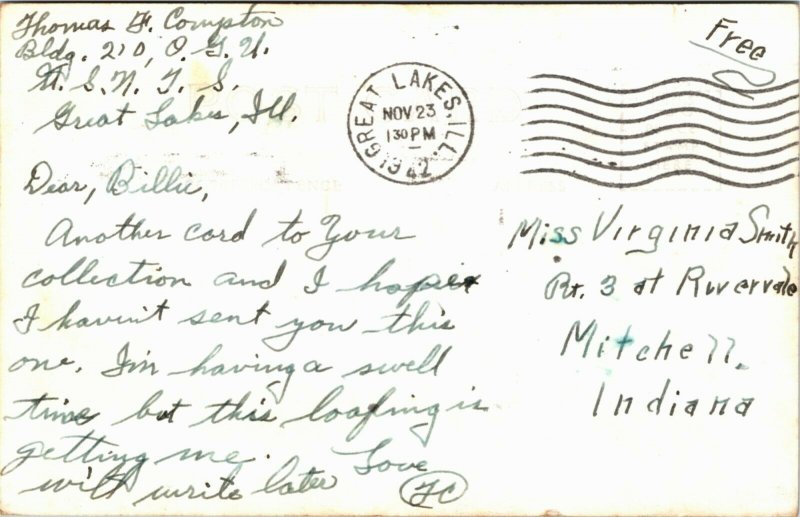 Thomas F. Compston
Bldg. 210, O.G.U.
U.S.N.T.S.
Great Lakes, Ill.
Free
GREAT LAKES, ILL.
NOV 23
130 PM
1942
Dear, Billie,
Another card to Your
collection and I hope
I haven't sent you this
one. I'm having a swell
time but this loafing is
getting me. Love
will write later TC
Miss Virginia Smith
Rt. 3 at Rivervale
Mitchell,
Indiana